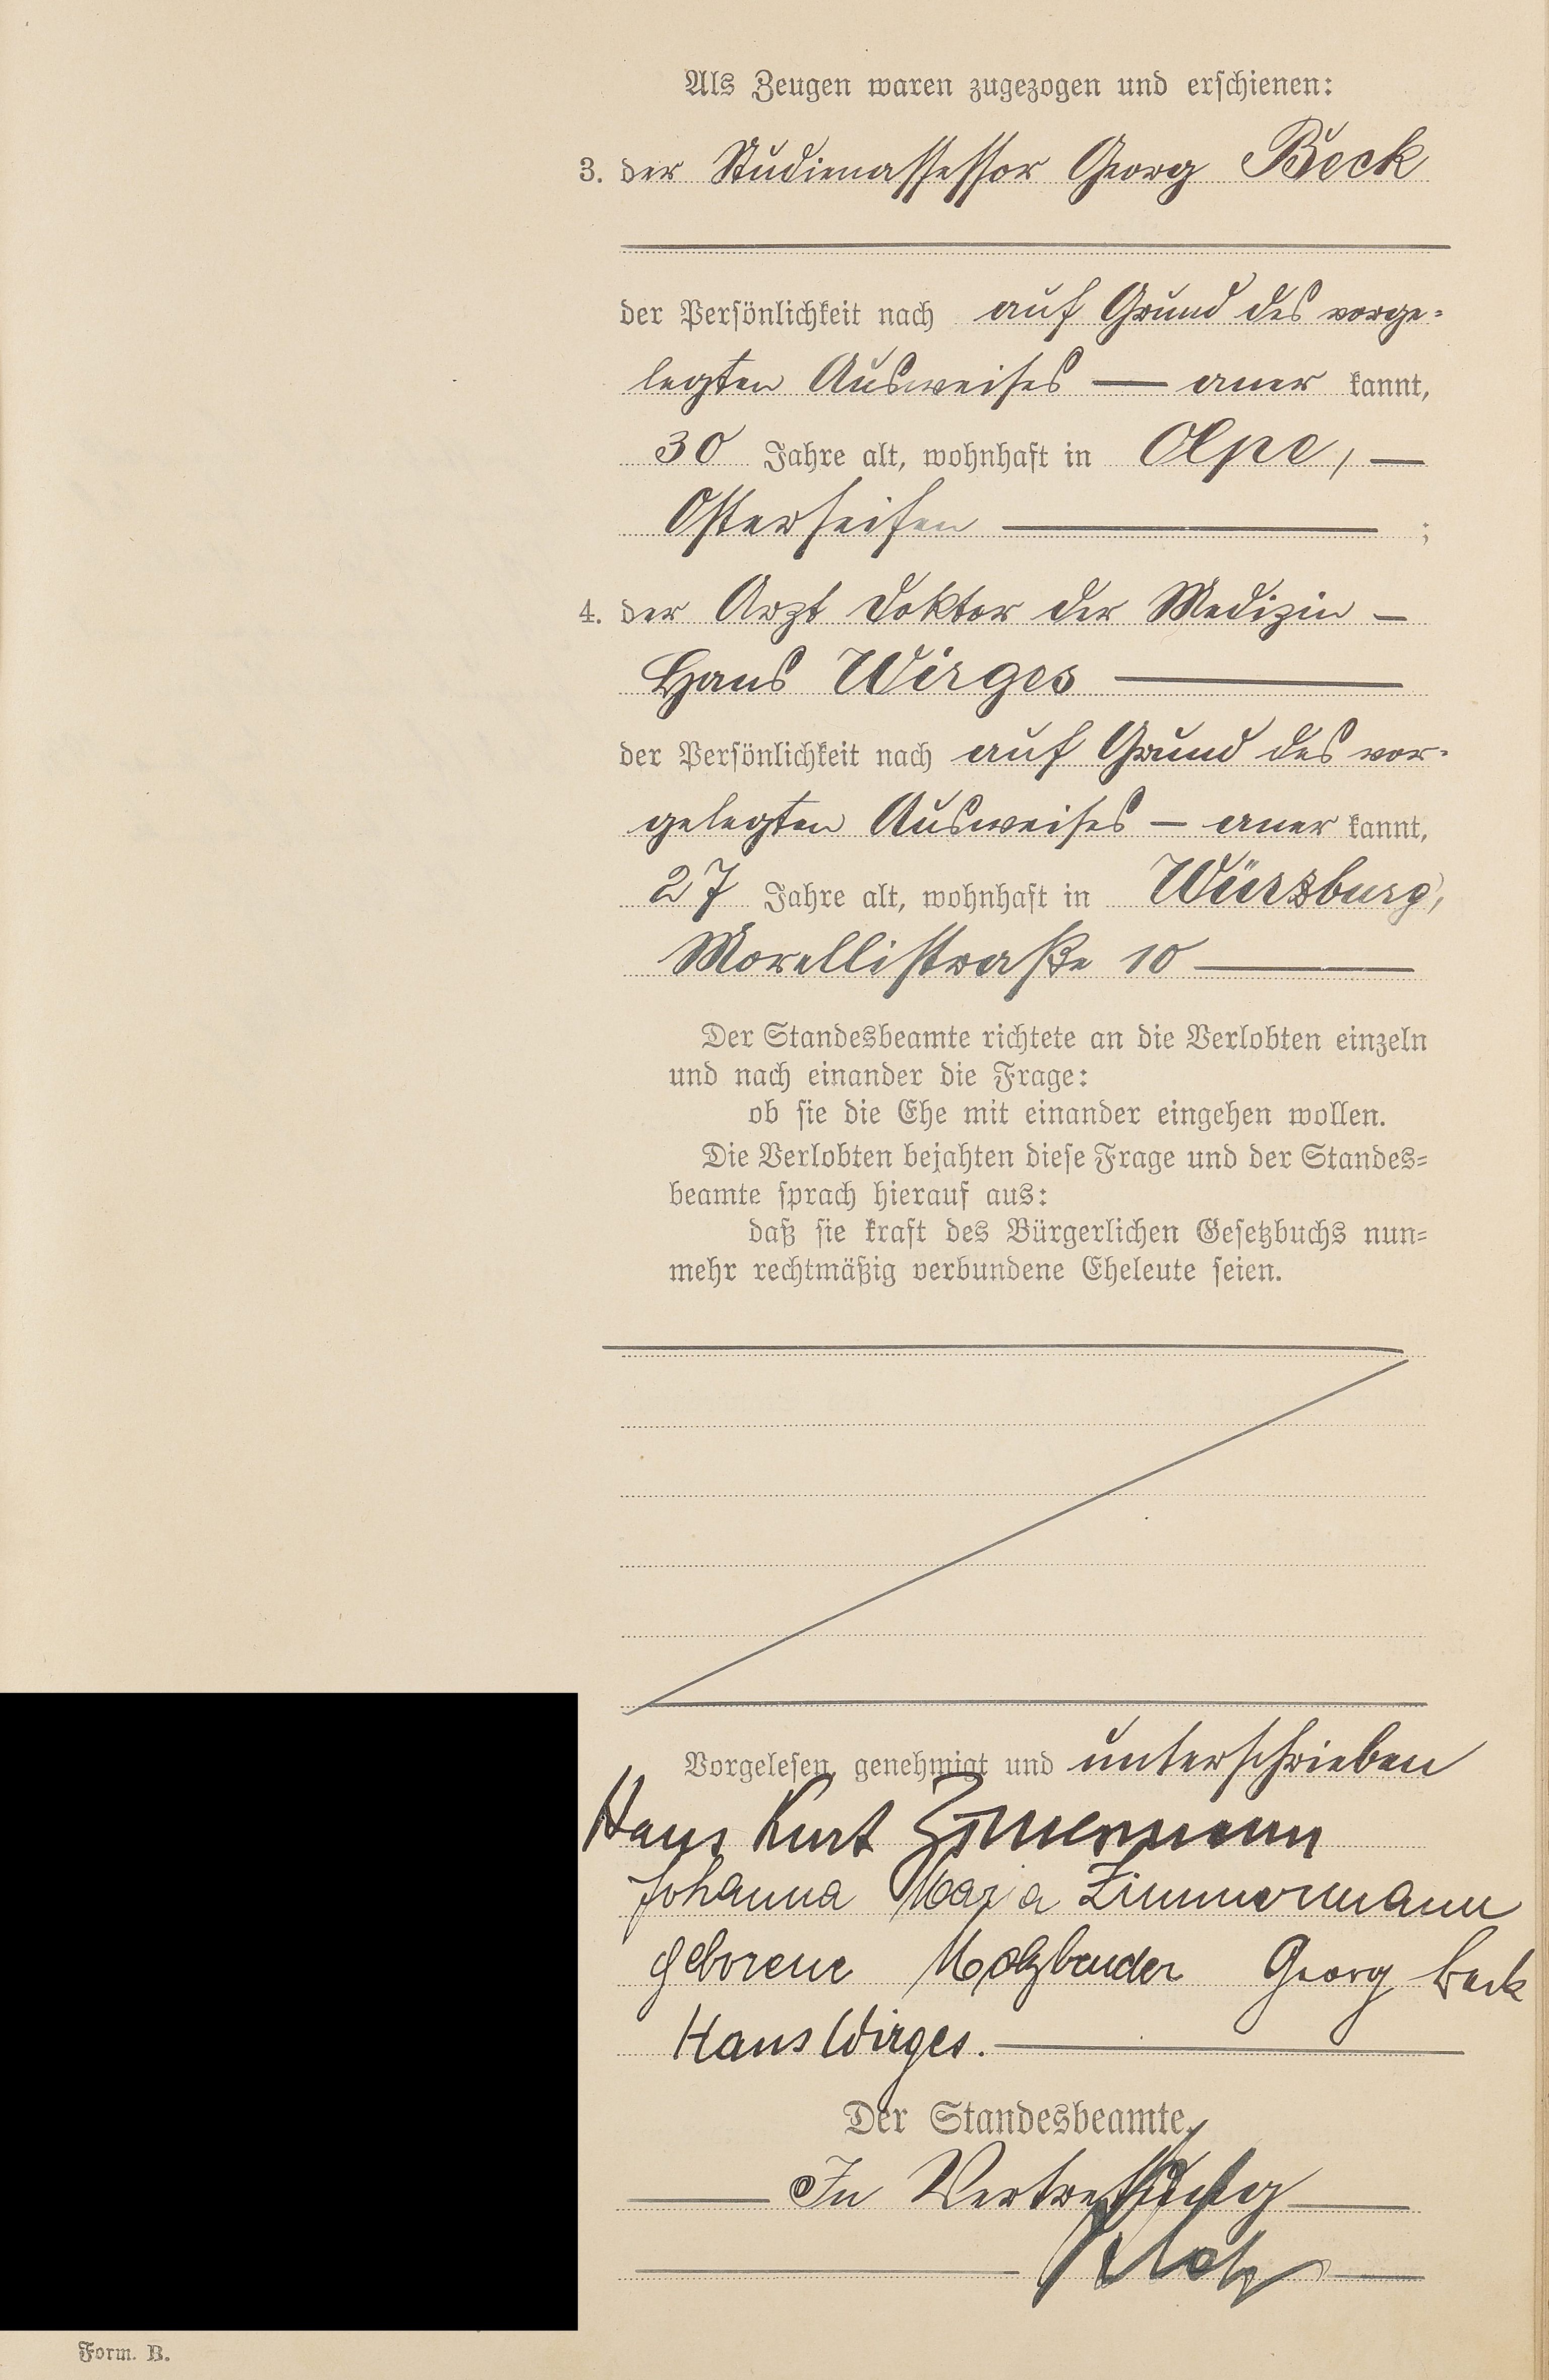 Als Zeugen waren zugezogen und erschienen:
3. der Studienassessor Georg Beck
der Persönlichkeit nach auf Grund des vorge-
legten Ausweises — aner kannt,
30 Jahre alt, wohnhaft in Olpe, —
Osterseifen — ;
4. der Arzt Doktor der Medizin —
Hans Wirges —
der Persönlichkeit nach auf Grund des vor-
gelegten Ausweises — aner kannt,
27 Jahre alt, wohnhaft in Würzburg,
Morellistraße 10 —
Der Standesbeamte richtete an die Verlobten einzeln
und nach einander die Frage:
ob sie die Ehe mit einander eingehen wollen.
Die Verlobten bejahten diese Frage und der Standes-
beamte sprach hierauf aus:
daß sie kraft des Bürgerlichen Gesetzbuchs nun-
mehr rechtmäßig verbundene Eheleute seien.
Vorgelesen, genehmigt und unterschrieben
Hans Kurt Zimmermann
Johanna Maria Zimmermann
geborene Molzberger Georg Beck
Hans Wirges. —
Der Standesbeamte.
— In Vertretung —
Form. B.